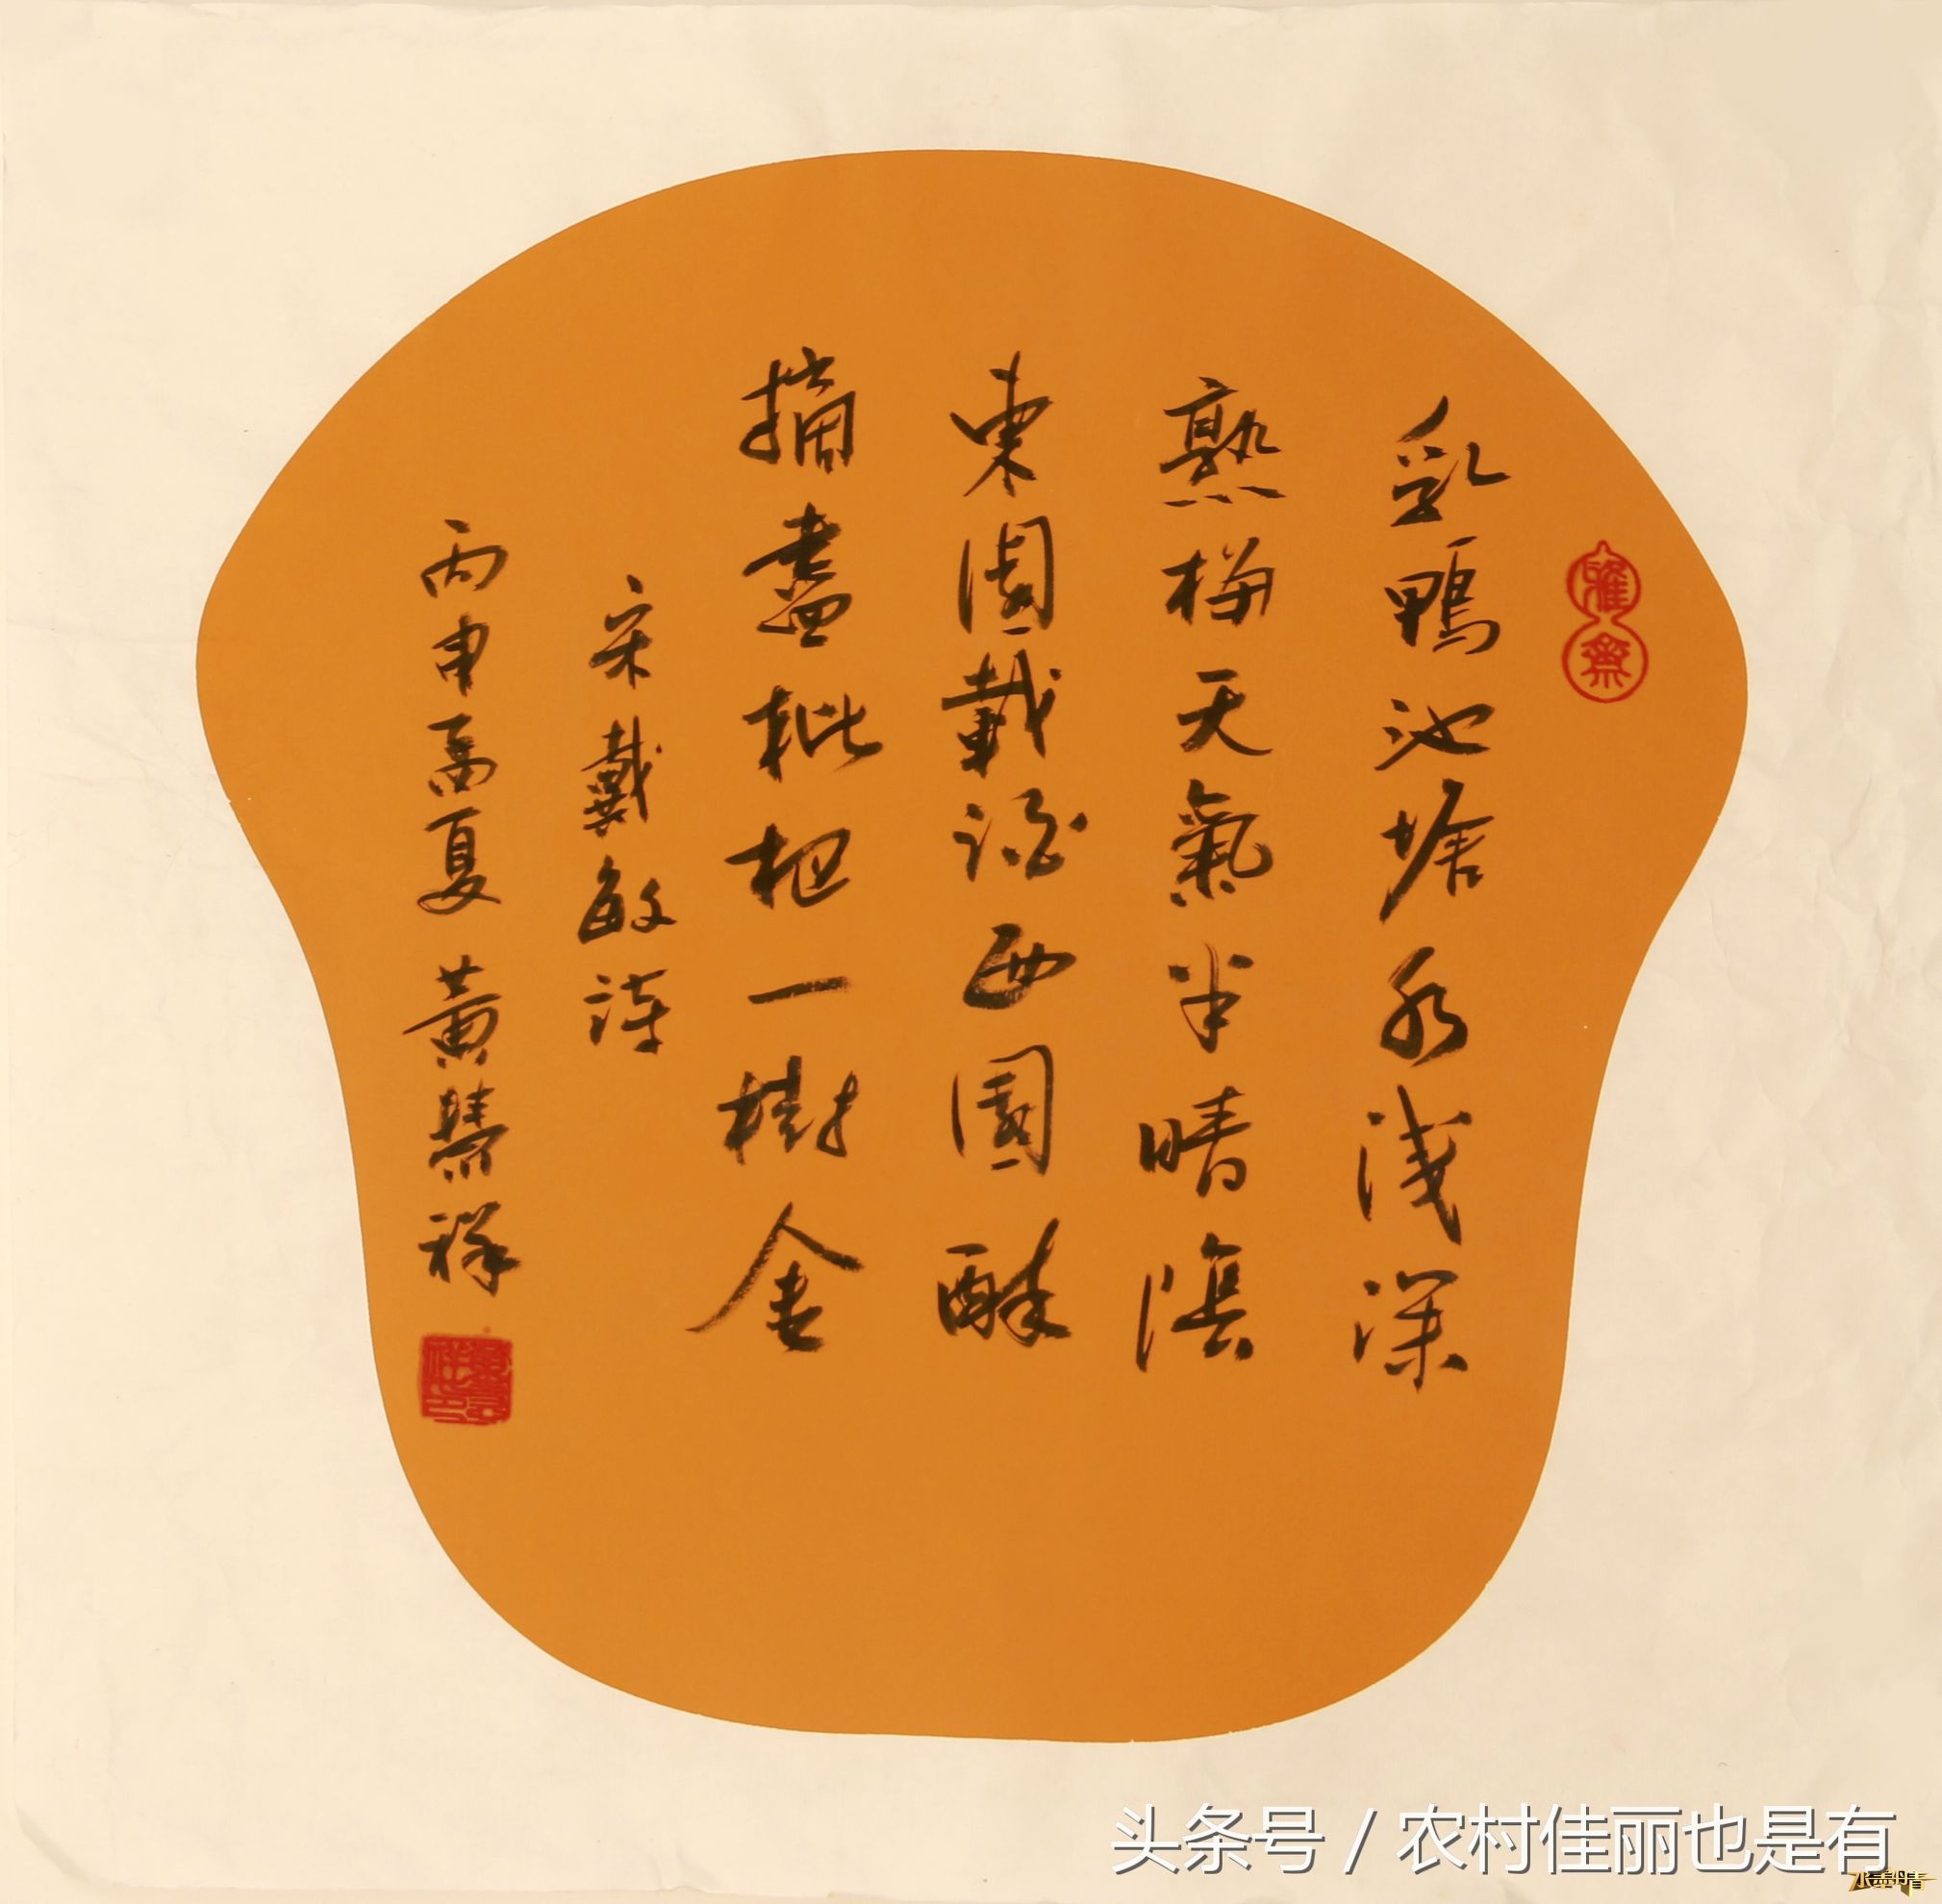 乳鴨池塘水淺深
熟梅天氣半晴陰
東園載酒西園醉
摘盡枇杷一樹金
宋戴敏詩
丙申夏 黃 祥
雅齋
头条号 / 农村佳丽也是有
水墨丹青